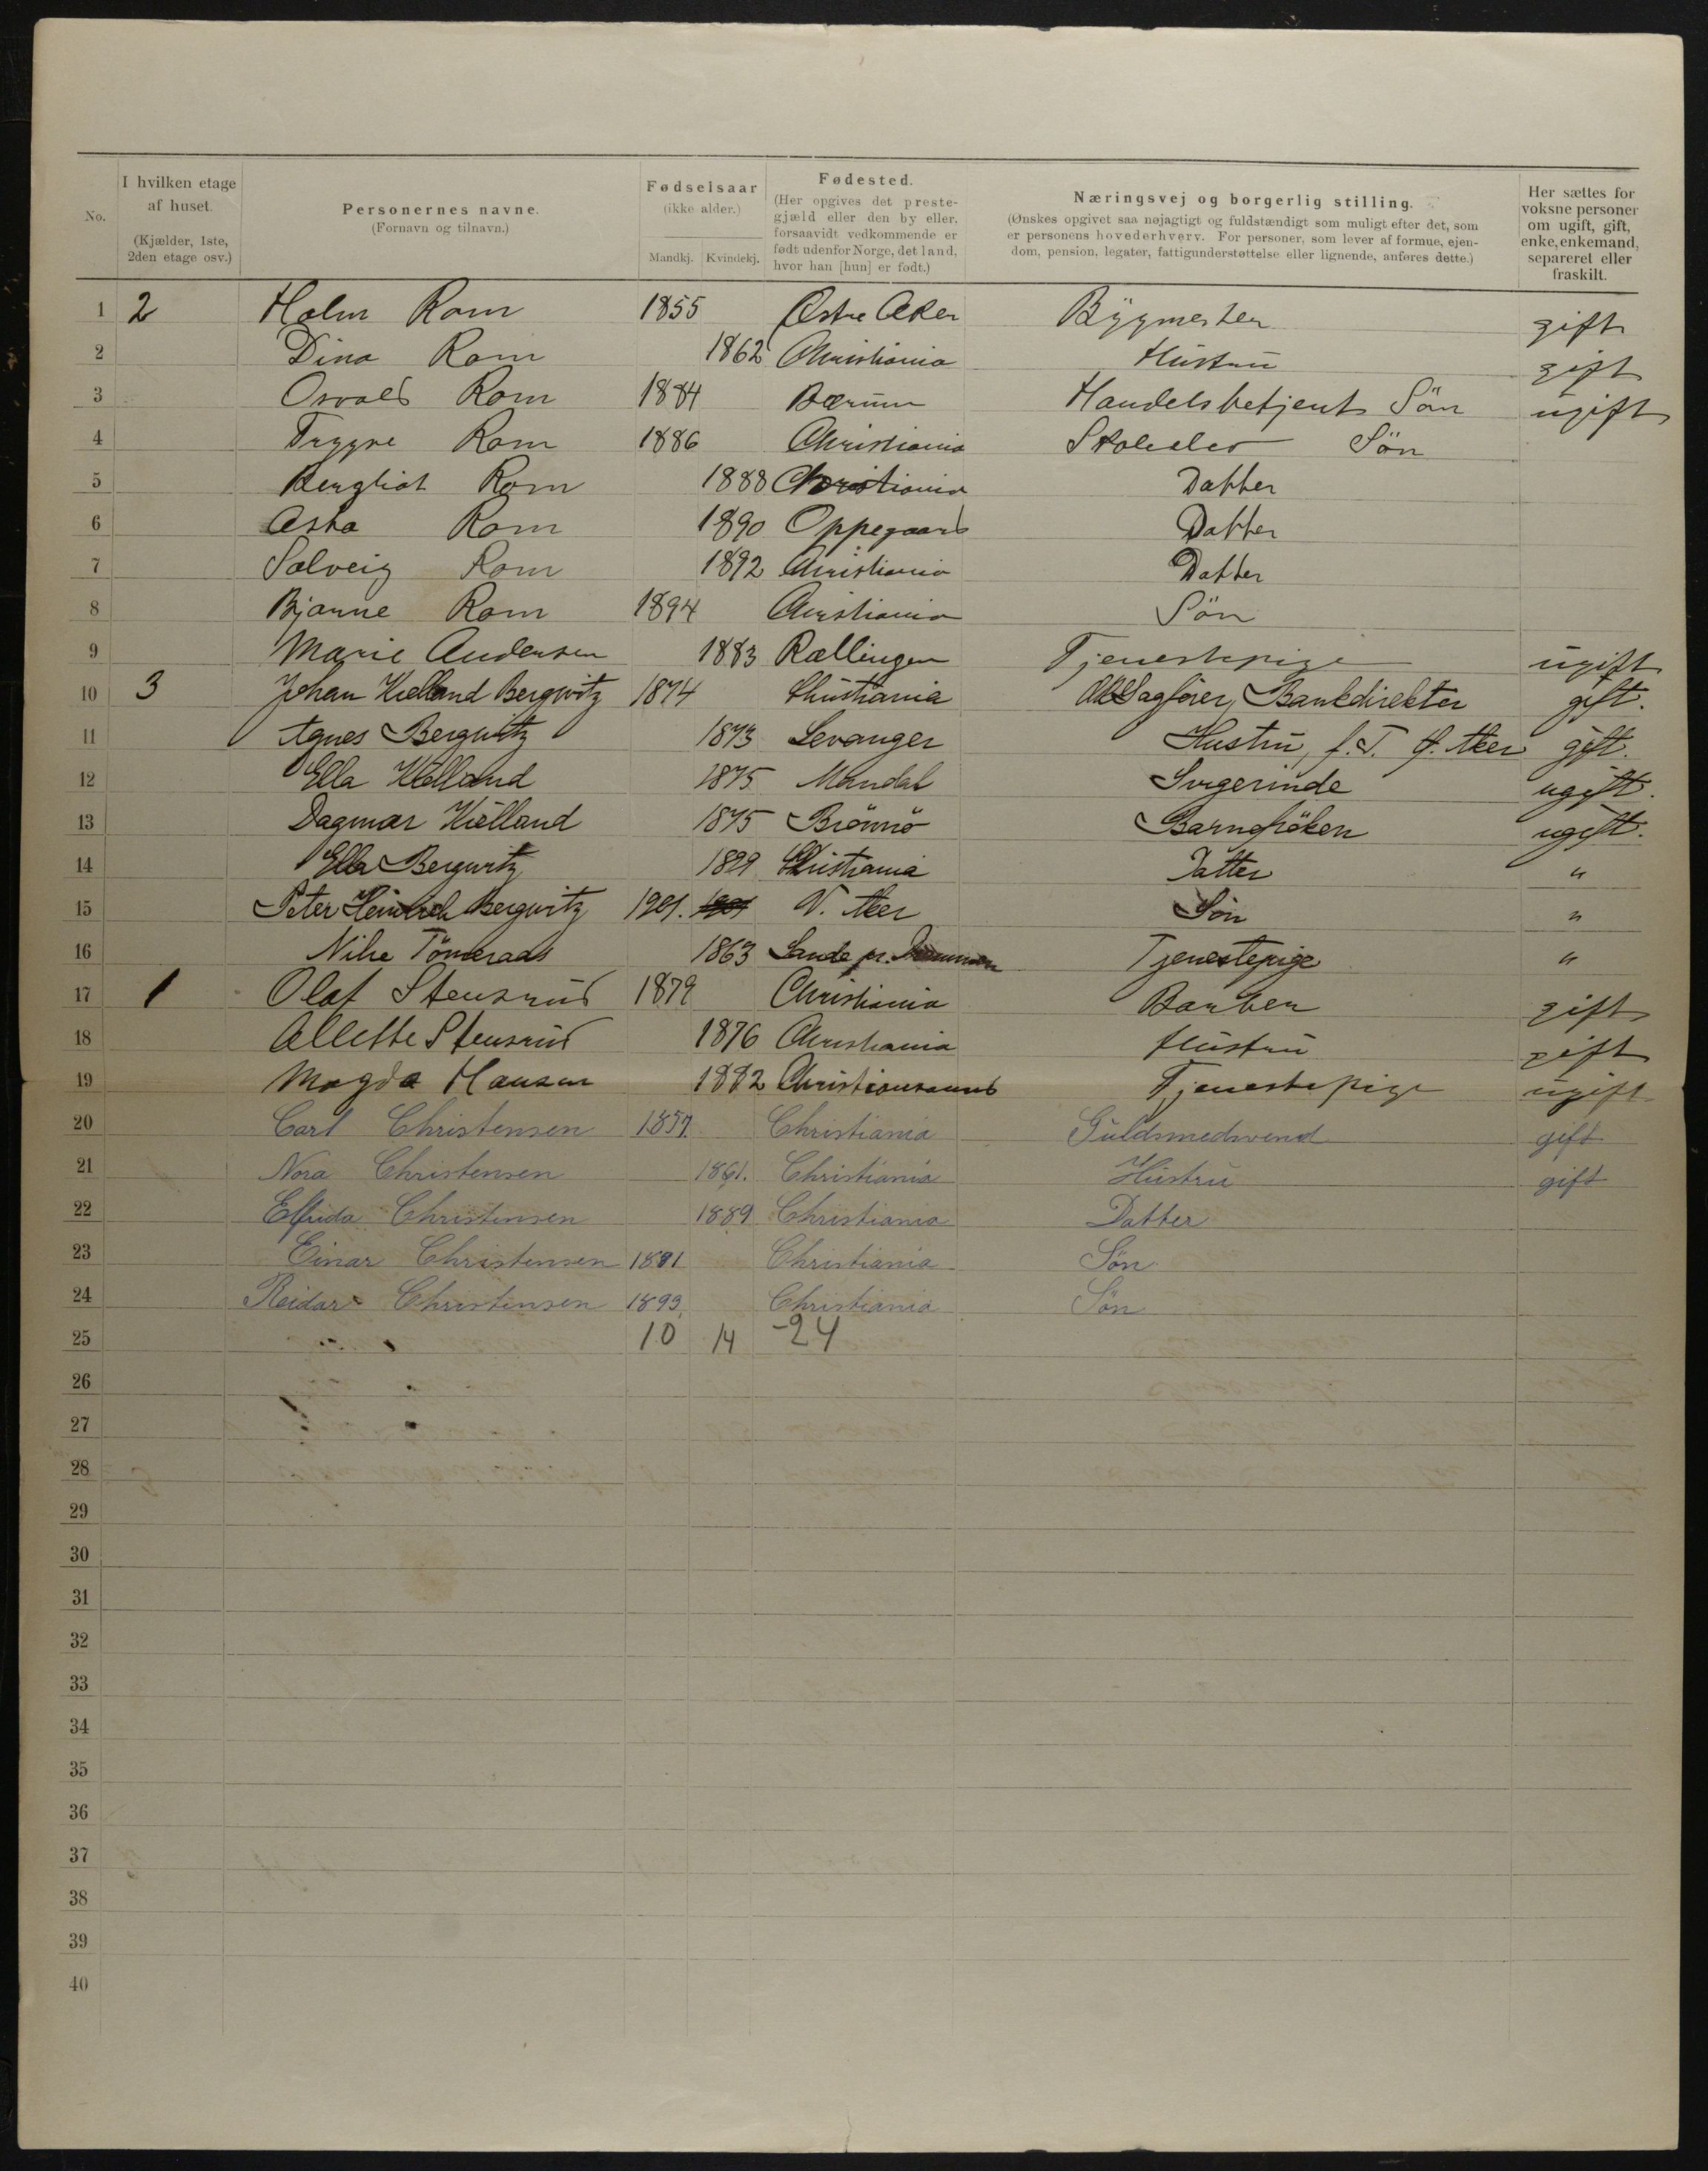 No.
I hvilken etage af huset. (Kjælder, 1ste, 2den etage osv.)
Personernes navne. (Fornavn og tilnavn.)
Fødselsaar (ikke alder.) Mandkj. Kvindekj.
Fødested. (Her opgives det prestegjæld eller den by eller, forsaavidt vedkommende er født udenfor Norge, det land, hvor han [hun] er født.)
Næringsvej og borgerlig stilling. (Ønskes opgivet saa nøjagtigt og fuldstændigt som muligt efter det, som er personens hovederhverv. For personer, som lever af formue, ejendom, pension, legater, fattigunderstøttelse eller lignende, anføres dette.)
Her sættes for voksne personer om ugift, gift, enke, enkemand, separeret eller fraskilt.
1 2 Holm Rom 1855 Østre Aker Bygmester gift
2 Dina Rom 1862 Christiania Hustru gift
3 Osvald Rom 1884 Bærum Handelsbetjent Sön ugift
4 Trygve Rom 1886 Christiania Skoleelev Sön
5 Bergliot Rom 1888 Christiania Datter
6 Asta Rom 1890 Oppegaard Datter
7 Solveig Rom 1892 Christiania Datter
8 Bjarne Rom 1894 Christiania Sön
9 Marie Andersen 1883 Rællingen Tjenestepige ugift
10 3 Johan Kielland Bergwitz 1874 Christiania Sagfører, Bankdirektør gift.
11 Agnes Bergwitz 1873 Levanger Hustru, f. T. Aker gift.
12 Ella Kielland 1875 Mandal ugift.
13 Dagmar Kielland 1875 Brönnö Barnefröken ugift.
14 Ella Bergwitz 1899 Christiania Datter "
15 Peter Heinrich Bergwitz 1901. V. Aker Sön "
16 1863 Sande pr. Drammen Tjenestepige "
17 1 Olaf Stensrud 1879 Christiania Barber gift
18 Allette Stensrud 1876 Christiania Hustru gift
19 Magda Hansen 1882 Christianssand Tjenestepige ugift
20 Carl Christensen 1857 Christiania Guldsmedsvend gift
21 Nora Christensen 1861. Christiania Hustru gift
22 Elfrida Christensen 1889 Christiania Datter
23 Einar Christensen 1891 Christiania Sön
24 Reidar Christensen 1893. Christiania Sön
25 10 14 -24
26
27
28
29
30
31
32
33
34
35
36
37
38
39
40